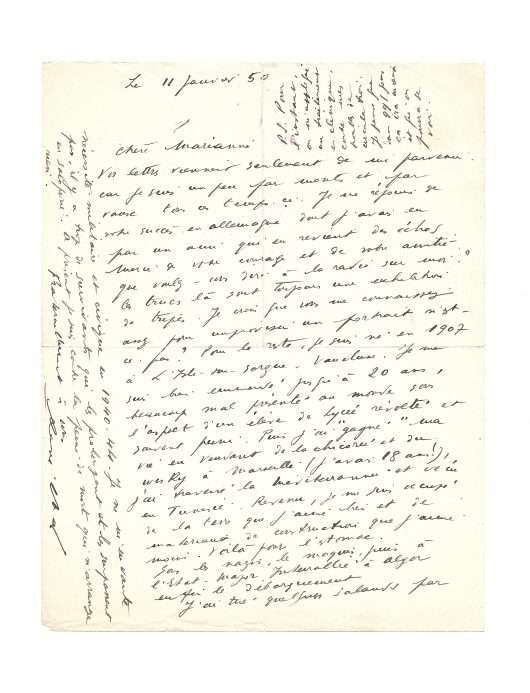 Le 11 Janvier 50
Chère Marianne
Vos lettres viennent seulement de me parvenir
car je suis un peu par monts et par
vaux tous ces temps ci. Je me réjouis de
votre succès en allemagne dont j'avais eu
par un ami qui en revient des échos.
Merci de votre courage et de votre amitié
que voulez-vous dire à la radio sur moi?
les trucs là sont toujours une exhibition
de tripes. Je crois que vous me connaissez
assez pour improviser un portrait n'est-
ce-pas? Pour le reste, je suis né en 1907
à L'Isle-sur-Sorgue. Vaucluse. Je me
suis bien emmerdé jusqu'à 20 ans,
beaucoup mal présenté au monde sous
l'aspect d'un élève de Lycée révolté et
souvent puni. Puis j'ai "gagné" ma
vie en vendant de la chicorée et du
wisky à Marseille (j'avais 18 ans),
j'ai traversé la méditerranée et vécu
en Tunisie. Revenu, je me suis occupé
de la terre que j'aime bien et de
materiaux de construction que j'aime
moins. Voilà pour l'estomac.
les nazis, le maquis, puis à
l'Etat-Major Interallié à alger
enfin le débarquement
J'ai tué quelques salauds par
nécessité militaire et civique en 1940-44. Je ne m'en vante
pas, il y a trop de survivants qui la prolongent et les
en salopent.
rien. Fraternellement à vous
René Char
P.S. Pour
l'instant,
en traitement
en clinique,